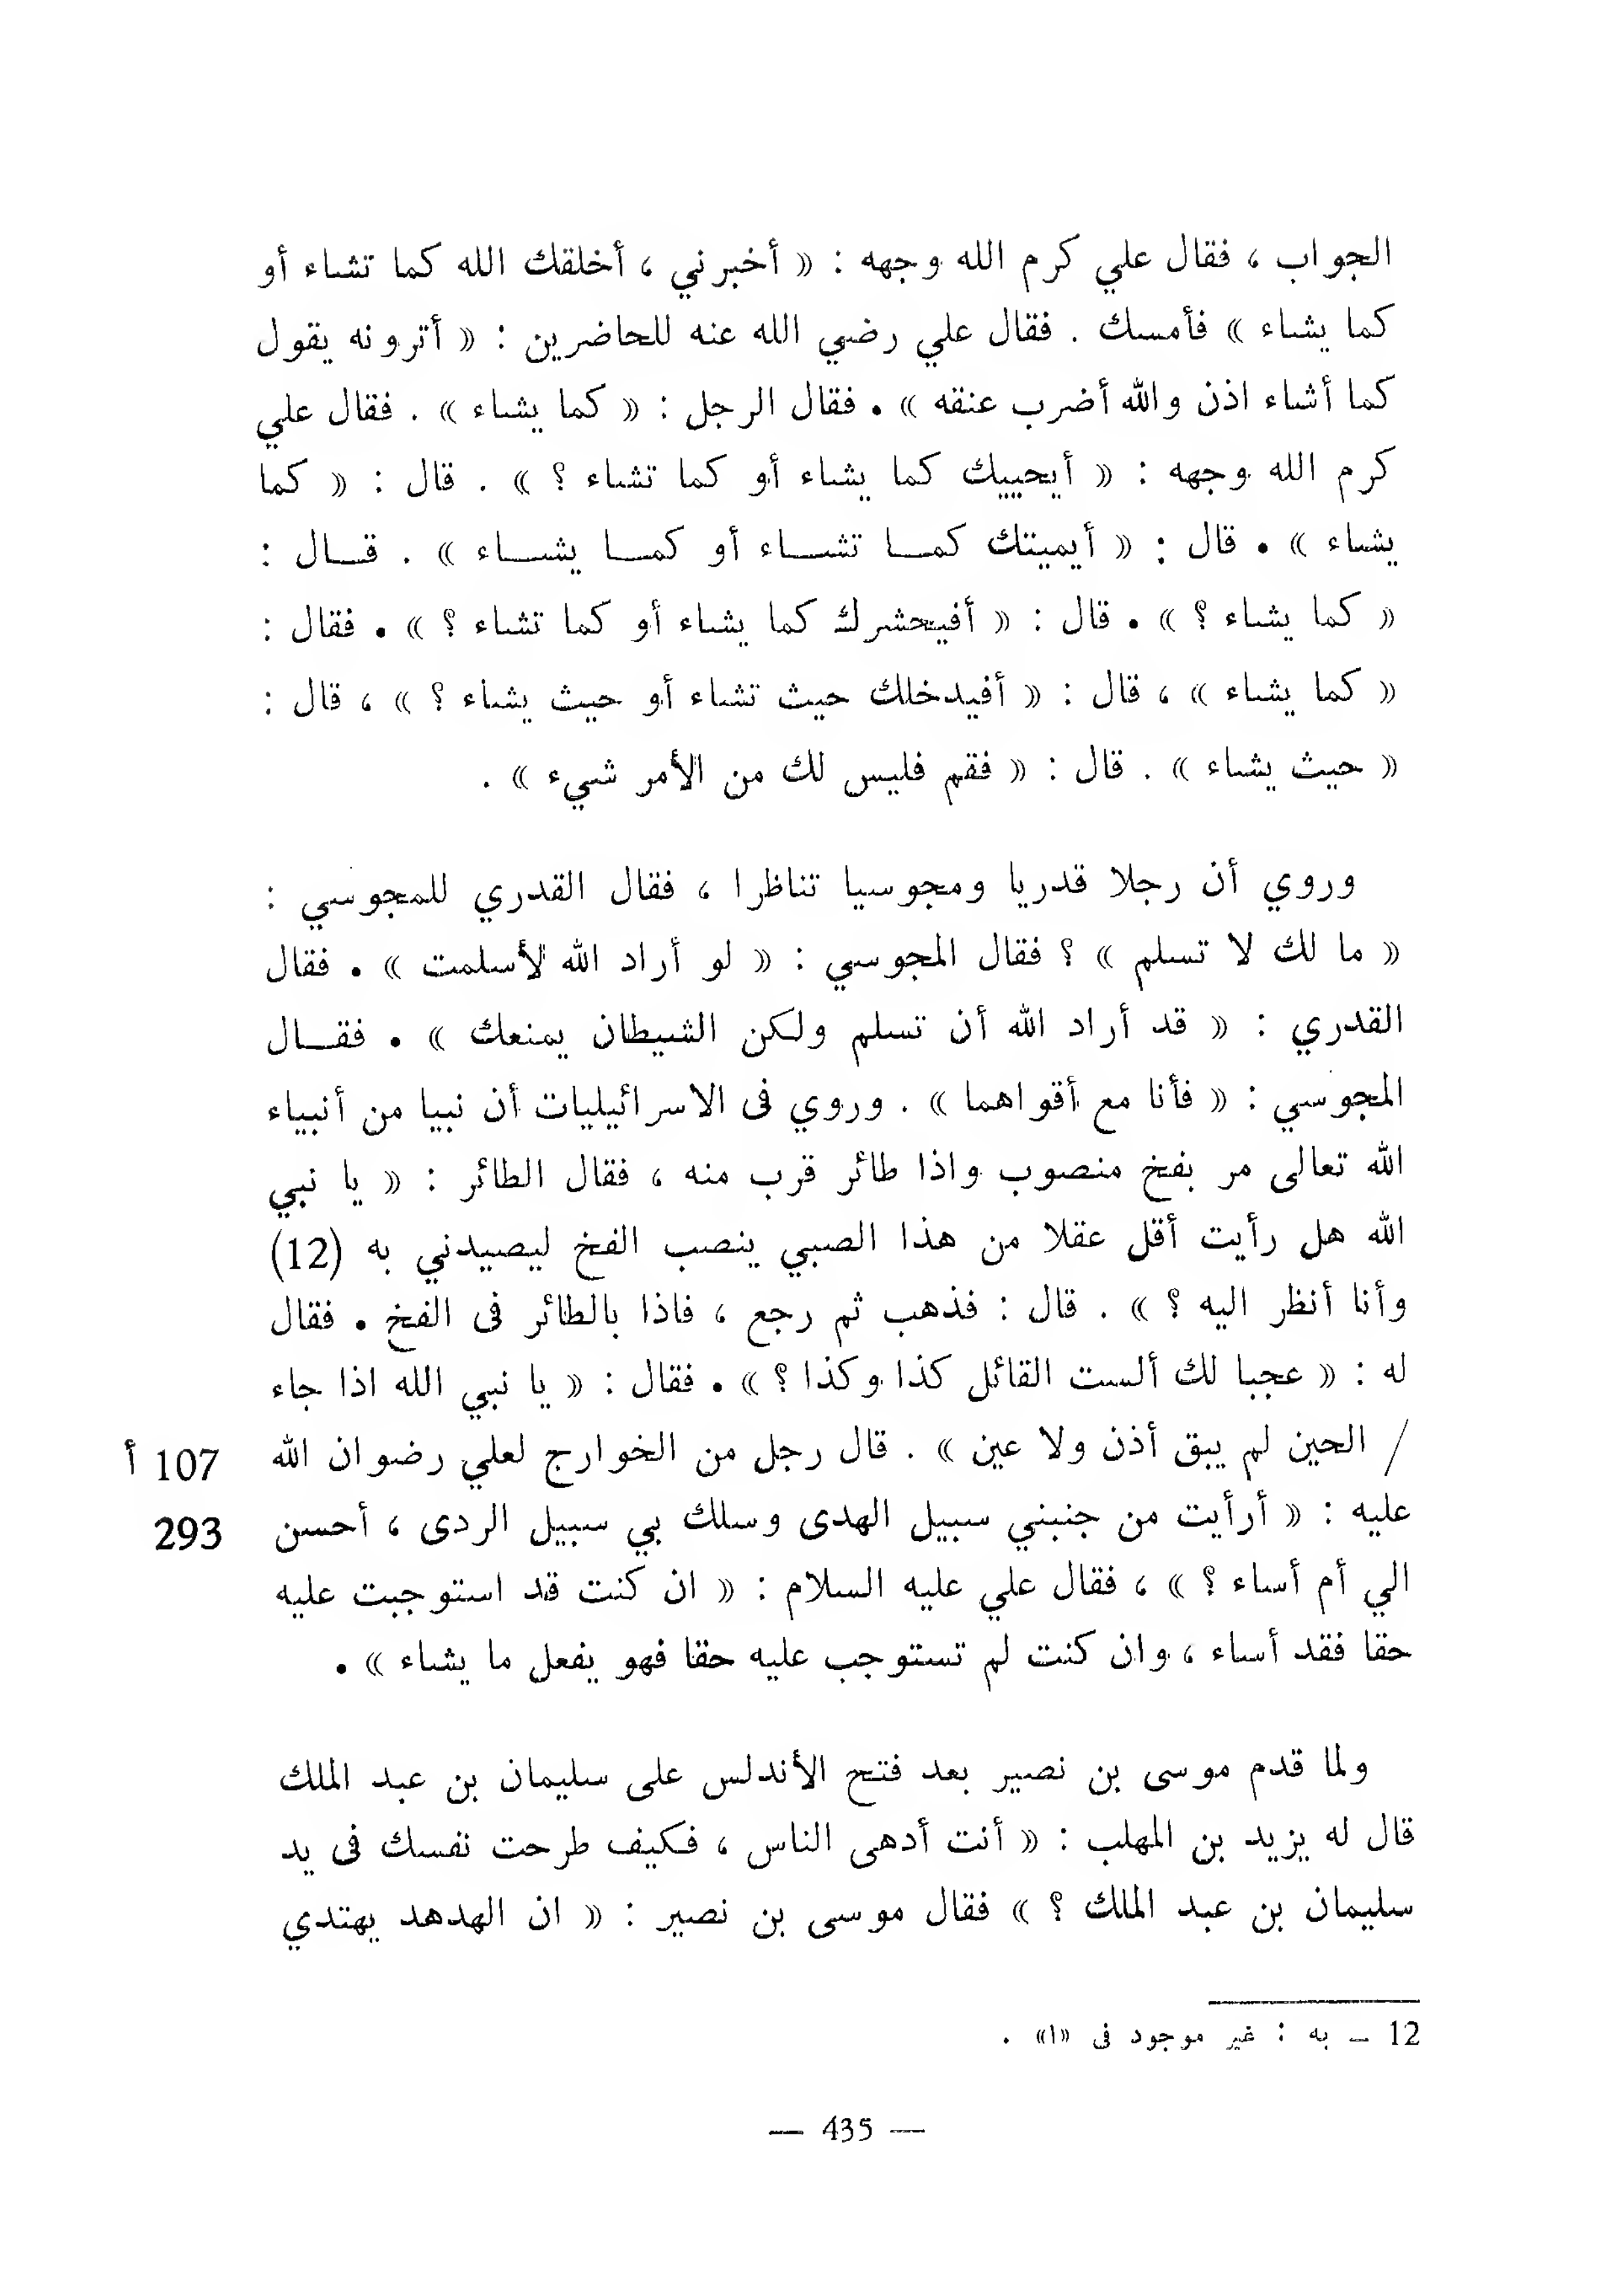 الجواب ، فقال علي كرم الله وجهه : « أخبرني ، أخلقك الله كما تشاء أو
كما يشاء » فأمسك . فقال علي رضي الله عنه للحاضرين : « أترونه يقول
كما أشاء اذن والله أضرب عنقه » . فقال الرجل : « كما يشاء » . فقال علي
كرم الله وجهه : « أيحييك كما يشاء أو كما تشاء ؟ » . قال : « كما
يشاء » . قال : « أيميتك كمـا تشـاء أو كمـا يشـاء » . قـال :
« كما يشاء ؟ » . قال : « أفيحشرك كما يشاء أو كما تشاء ؟ » . فقال :
« كما يشاء » ، قال : « أفيدخلك حيث تشاء أو حيث يشاء ؟ » ، قال :
« حيث يشاء » . قال : « فقم فليس لك من الأمر شيء » .
وروي أن رجلا قدريا ومجوسيا تناظرا ، فقال القدري للمجوسي :
« ما لك لا تسلم » ؟ فقال المجوسي : « لو أراد الله لأسلمت » . فقال
القدري : « قد أراد الله أن تسلم ولكن الشيطان يمنعك » . فقـال
المجوسي : « فأنا مع أقواهما » . وروي فى الاسرائيليات أن نبيا من أنبياء
الله تعالى مر بفخ منصوب واذا طائر قرب منه ، فقال الطائر : « يا نبي
الله هل رأيت أقل عقلا من هذا الصبي ينصب الفخ ليصيدني به (12)
وأنا أنظر اليه ؟ » . قال : فذهب ثم رجع ، فاذا بالطائر فى الفخ . فقال
له : « عجبا لك ألست القائل كذا وكذا ؟ » . فقال : « يا نبي الله اذا جاء
/ الحين لم يبق أذن ولا عين » . قال رجل من الخوارج لعلي رضوان الله 107 أ
عليه : « أرأيت من جنبني سبيل الهدى وسلك بي سبيل الردى ، أحسن 293
الي أم أساء ؟ » ، فقال علي عليه السلام : « ان كنت قد استوجبت عليه
حقا فقد أساء ، وان كنت لم تستوجب عليه حقا فهو يفعل ما يشاء » .
ولما قدم موسى بن نصير بعد فتح الأندلس على سليمان بن عبد الملك
قال له يزيد بن المهلب : « أنت أدهى الناس ، فكيف طرحت نفسك فى يد
سليمان بن عبد الملك ؟ » فقال موسى بن نصير : « ان الهدهد يهتدي
12 ـ به : غير موجود فى «ا» .
— 435 —